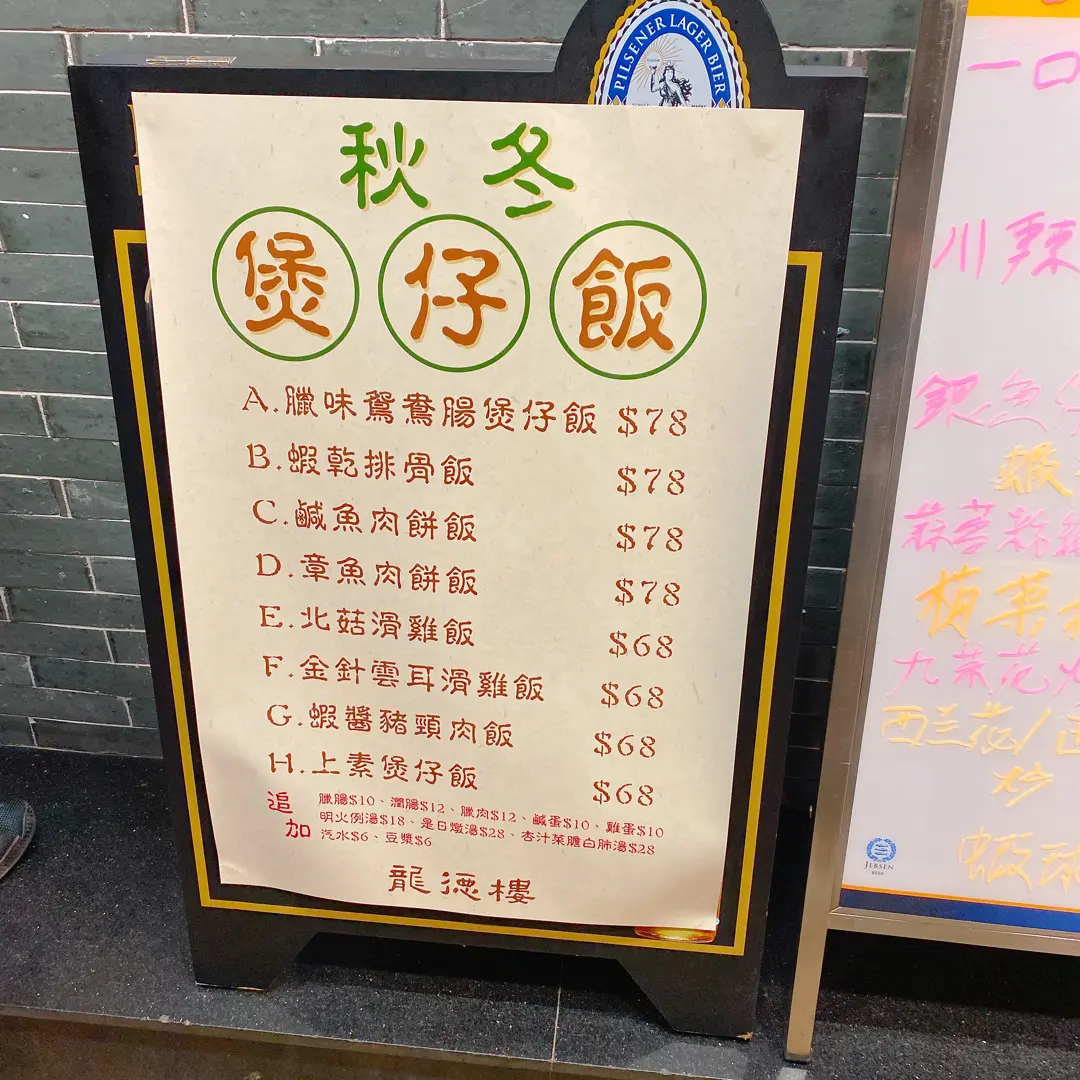 PILSENER LAGER BIER
秋冬
煲仔飯
A.臘味鴛鴦腸煲仔飯 $78
B.蝦乾排骨飯 $78
C.鹹魚肉餅飯 $78
D.章魚肉餅飯 $78
E.北菇滑雞飯 $68
F.金針雲耳滑雞飯 $68
G.蝦醬豬頸肉飯 $68
H.上素煲仔飯 $68
追加
臘腸$10、潤腸$12、臘肉$12、鹹蛋$10、雞蛋$10
明火例湯$18、是日燉湯$28、杏汁菜膽白肺湯$28
汽水$6、豆漿$6
龍德樓
一口
川辣
銀魚
蝦
蒜蓉炸雞
梅菜
九菜花
西兰花/西
炒
蝦球
JEBSEN
BEER